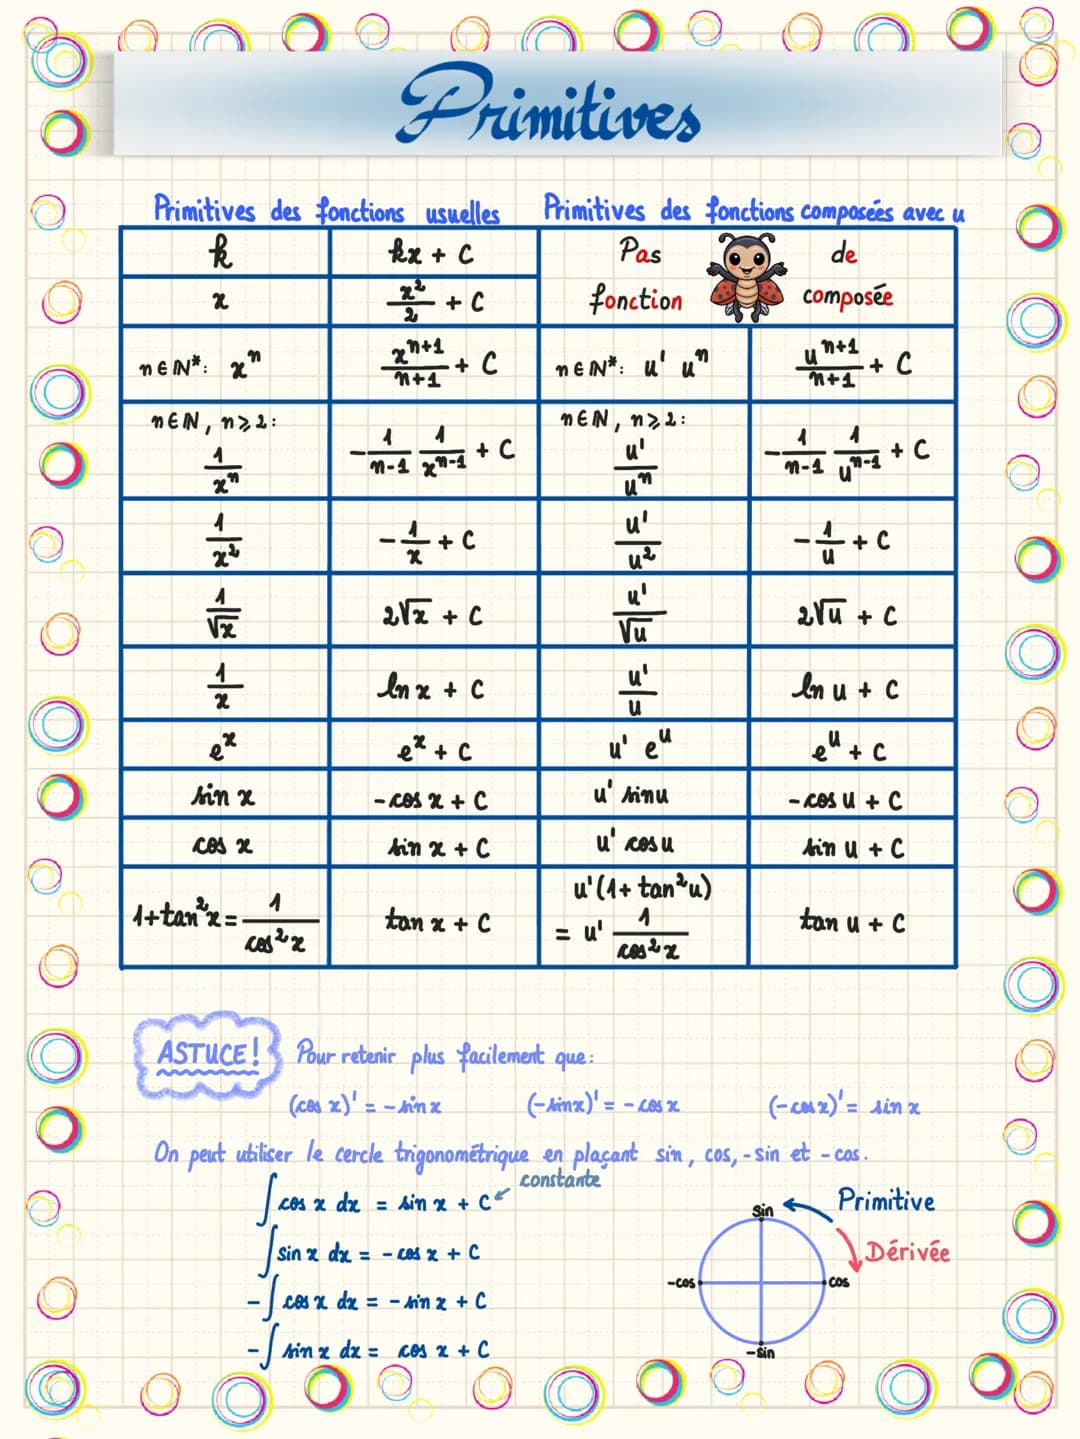 Primitives
Primitives des fonctions usuelles
Primitives des fonctions composées avec u
k
kx + C
Pas de
fonction composée
x
x²/2 + C
n∈ℕ*: xⁿ
xⁿ⁺¹/(n+1) + C
n∈ℕ*: u' uⁿ
uⁿ⁺¹/(n+1) + C
n∈ℕ, n⩾2:
1/xⁿ
-1/(n-1) 1/xⁿ⁻¹ + C
n∈ℕ, n⩾2:
u'/uⁿ
-1/(n-1) 1/uⁿ⁻¹ + C
1/x²
-1/x + C
u'/u²
-1/u + C
1/√x
2√x + C
u'/√u
2√u + C
1/x
ln x + C
u'/u
ln u + C
eˣ
eˣ + C
u' eᵘ
eᵘ + C
sin x
-cos x + C
u' sinu
-cos u + C
cos x
sin x + C
u' cosu
sin u + C
1+tan²x = 1/cos²x
tan x + C
u'(1+tan²u)
= u' 1/cos²x
tan u + C
ASTUCE! Pour retenir plus facilement que:
(cos x)' = -sin x (-sinx)' = -cos x (-cosx)' = sin x
On peut utiliser le cercle trigonométrique en plaçant sin, cos, -sin et -cos.
constante
∫cos x dx = sin x + C
∫sin x dx = -cos x + C
-∫cos x dx = -sin x + C
-∫sin x dx = cos x + C
Primitive
Dérivée
sin
-cos
cos
-sin